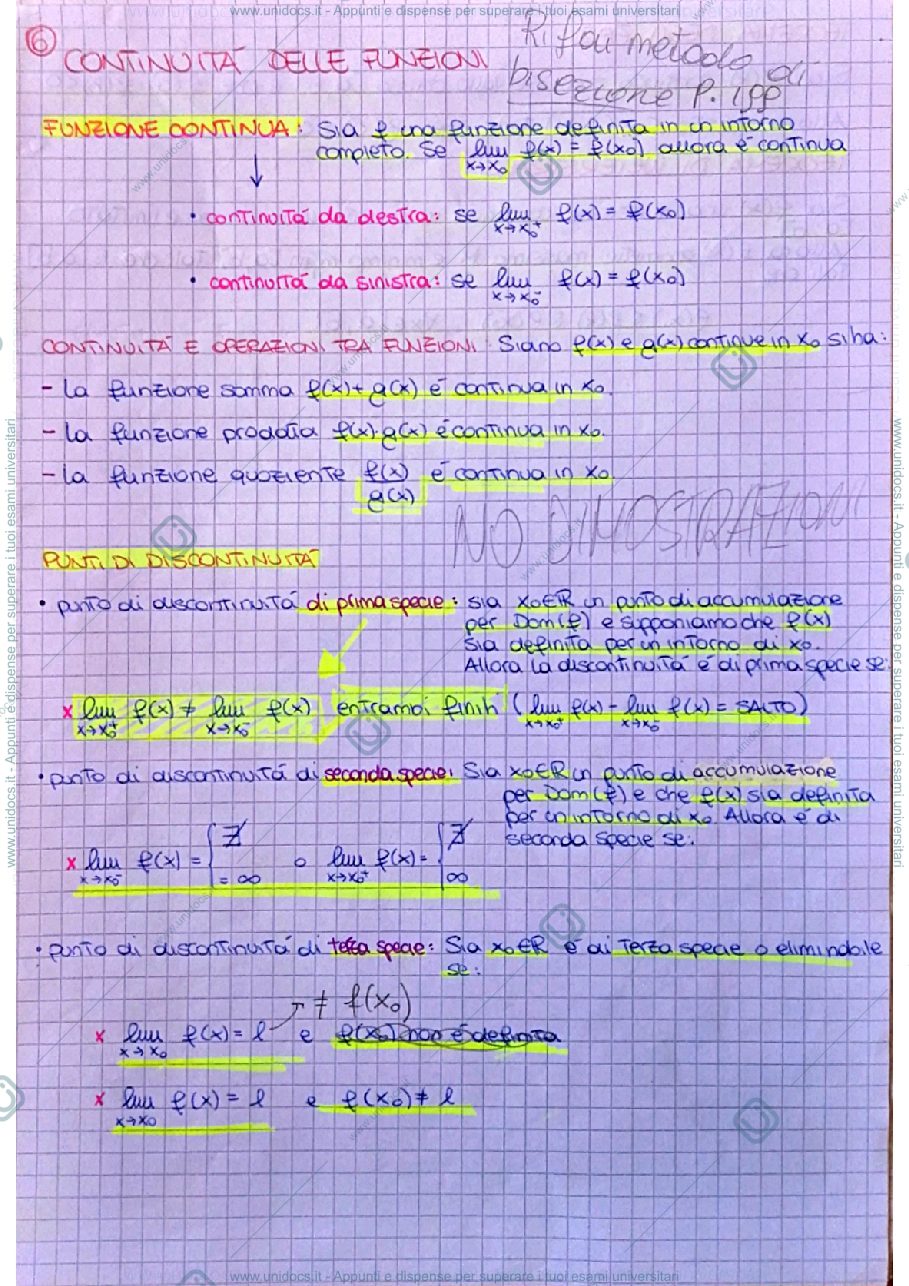 www.unidocs.it - Appunti e dispense per superare i tuoi esami universitari
6
CONTINUITÀ DELLE FUNZIONI
metodo di
bisezione P. 199
FUNZIONE CONTINUA: Sia f una funzione definita in un intorno
completo. Se lim x→x₀ f(x) = f(x₀) allora è continua
↓
• continuità da destra: se lim x→x₀⁺ f(x) = f(x₀)
• continuità da sinistra: se lim x→x₀⁻ f(x) = f(x₀)
CONTINUITÀ E OPERAZIONI TRA FUNZIONI Siano f(x) e g(x) continue in x₀ si ha:
- La funzione somma f(x) + g(x) è continua in x₀.
- La funzione prodotto f(x)·g(x) è continua in x₀.
- la funzione quoziente f(x)/g(x) è continua in x₀
NO DIMOSTRAZIONI
PUNTI DI DISCONTINUITÀ
• punto di discontinuità di prima specie: sia x₀∈ℝ un punto di accumulazione
per Dom(f) e supponiamo che f(x)
sia definita per un intorno di x₀.
Allora la discontinuità è di prima specie se:
x lim x→x₀⁺ f(x) ≠ lim x→x₀⁻ f(x) entrambi finiti (lim x→x₀⁺ f(x) - lim x→x₀⁻ f(x) = SALTO)
• punto di discontinuità di seconda specie: Sia x₀∈ℝ un punto di accumulazione
per Dom(f) e che f(x) sia definita
per un intorno di x₀. Allora è di
seconda specie se:
x lim x→x₀⁻ f(x) = { ∄ = ∞ o lim x→x₀⁺ f(x) = { ∄ ∞
• punto di discontinuità di terza specie: Sia x₀∈ℝ è di terza specie o eliminabile
se:
≠ f(x₀)
x lim x→x₀ f(x) = l e f(x₀) non è definita
x lim x→x₀ f(x) = l e f(x₀) ≠ l
www.unidocs.it - Appunti e dispense per superare i tuoi esami universitari